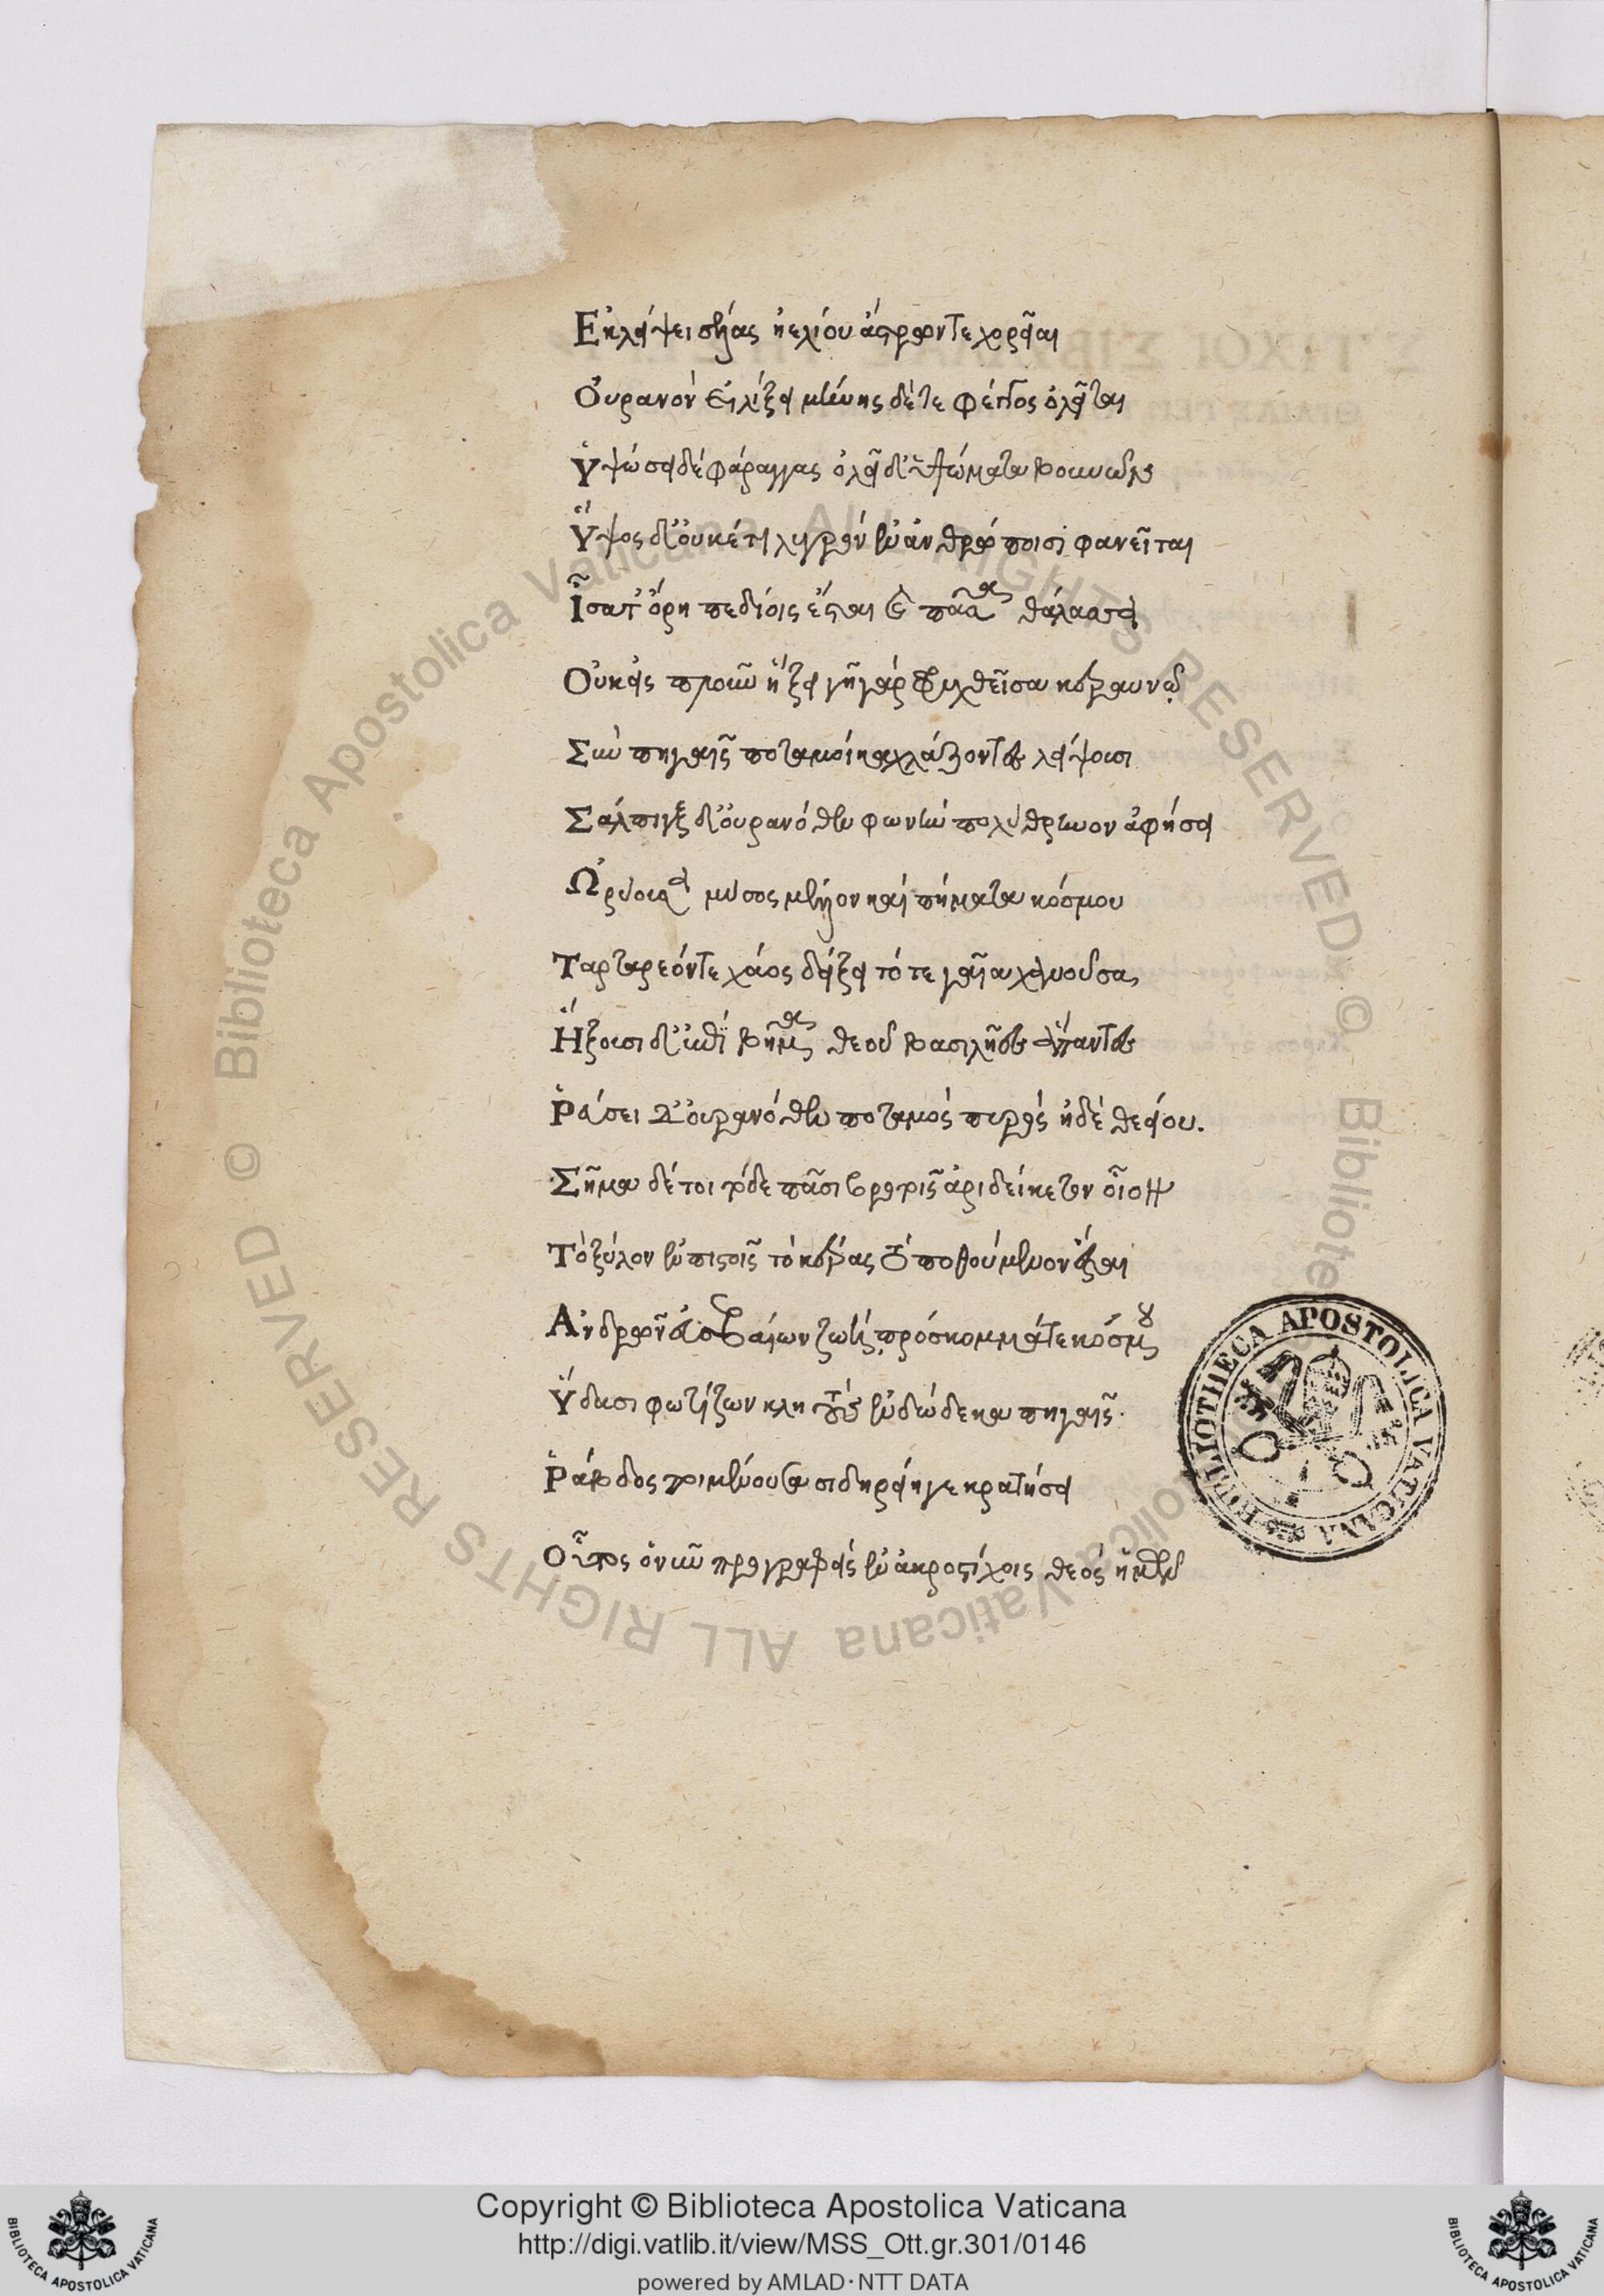 Ἐκλείψει σέλας ἠελίου ἄστρων τε χορεῖαι
Οὐρανὸν εἱλίξει μήνης δέ τε φέγγος ὀλεῖται
Ὑψώσει δὲ φάραγγας ὀλεῖ δ' ὑψώματα βουνῶν
Ὕψος δ' οὐκέτι λυγρὸν ἐν ἀνθρώποισι φανεῖται
Ἶσα τ' ὄρη πεδίοις ἔσται καὶ πᾶσα θάλασσα
Οὐκ εἰς πλοῦν ἥξει γῆ γὰρ φρυχθεῖσα κεραυνῷ
Σὺν πηγαῖς ποταμοὶ καχλάζοντες λείψουσι
Σάλπιγξ δ' οὐρανόθεν φωνὴν πολύθρηνον ἀφήσει
Ὠρύουσα μύσος μέλλον καὶ πήματα κόσμου
Ταρταρεόν τε χάος δείξει τότε γαῖα χανοῦσα
Ἥξουσι δ' ἐπὶ βῆμα θεοῦ βασιλῆες ἅπαντες
Ῥεύσει δ' οὐρανόθεν ποταμὸς πυρὸς ἠδὲ θεείου.
Σῆμα δέ τοι τότε πᾶσι βροτοῖς ἀριδείκετον οἷον
Τὸ ξύλον ἐν πιστοῖς τὸ κέρας τὸ ποθούμενον ἔσται
Ἀνδρῶν εὐσεβέων ζωή, πρόσκομμά τε κόσμου
Ὕδασι φωτίζων κλητοὺς ἐν δώδεκα πηγαῖς.
Ῥάβδος ποιμαίνουσα σιδηρείη γε κρατήσει
Οὗτος ὁ νῦν προγραφεὶς ἐν ἀκροστίχοις θεὸς ἡμῶν
BIBLIOTHECA APOSTOLICA VATICANA
© Biblioteca Apostolica Vaticana ALL RIGHTS RESERVED © Biblioteca Apostolica Vaticana ALL RIGHTS RESERVED
Copyright © Biblioteca Apostolica Vaticana
http://digi.vatlib.it/view/MSS_Ott.gr.301/0146
powered by AMLAD·NTT DATA
BIBLIOTECA APOSTOLICA VATICANA
BIBLIOTECA APOSTOLICA VATICANA